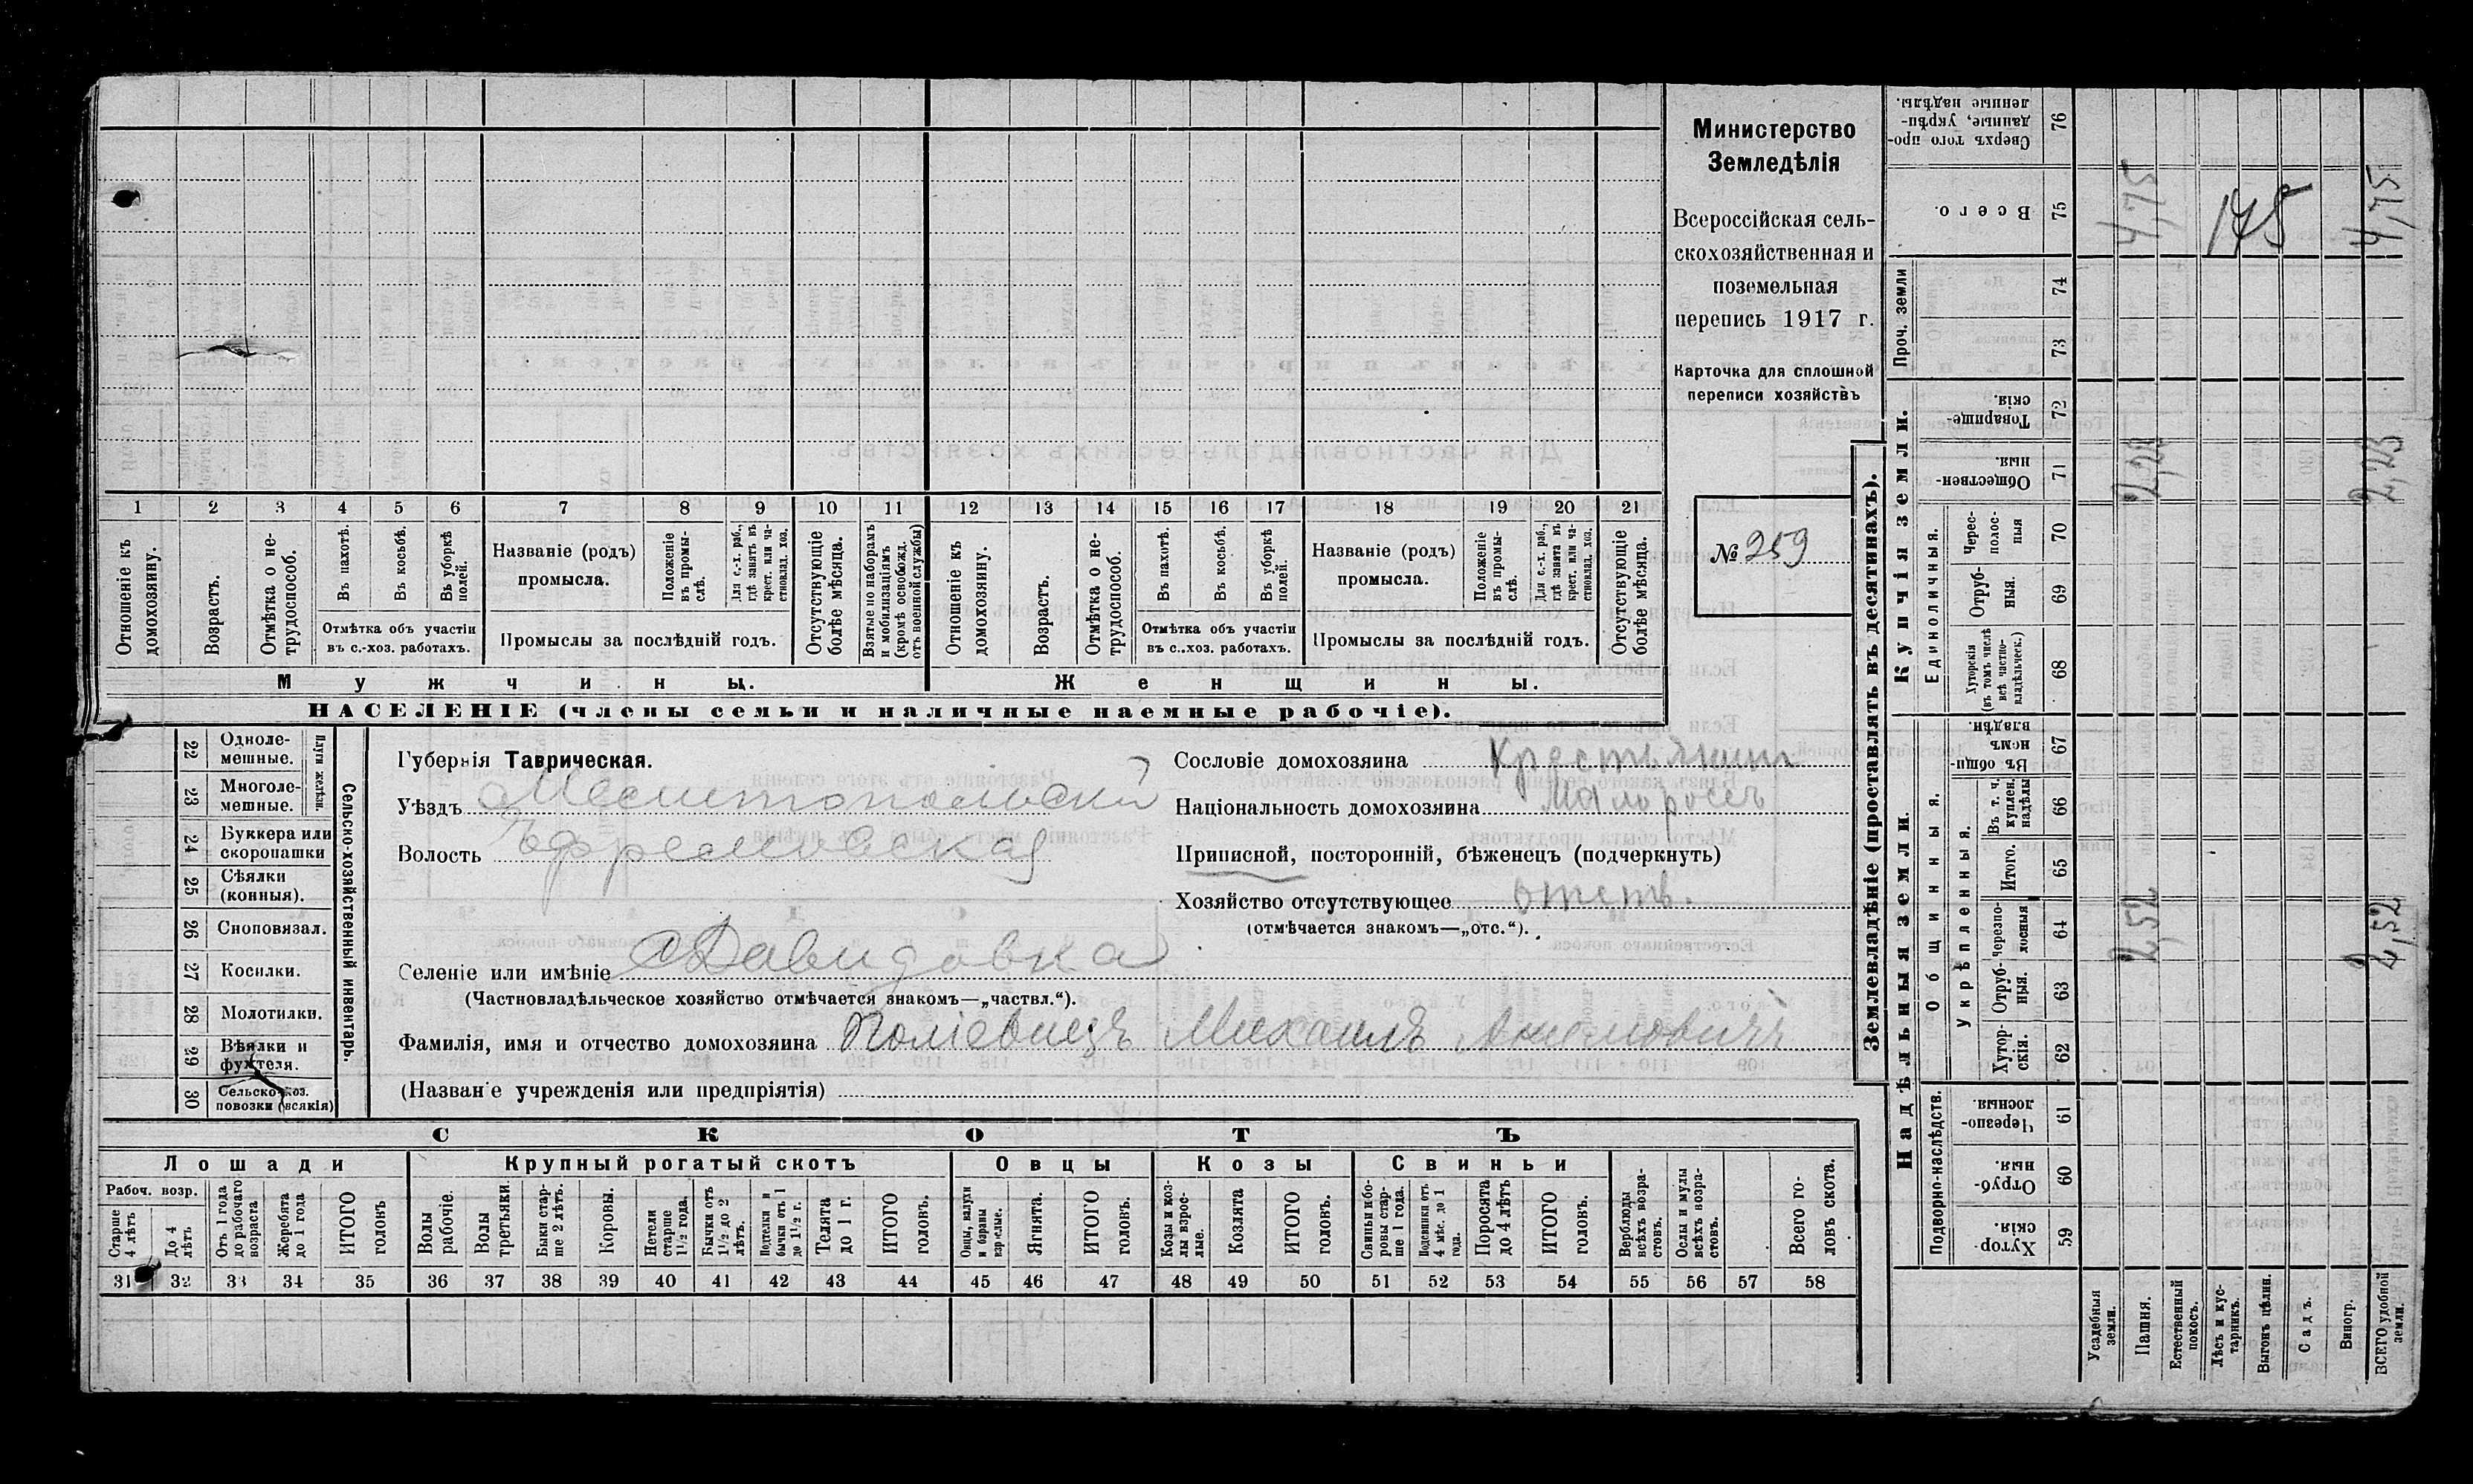 Министерство
Земледѣлія
Всероссійская сель-
скохозяйственная и
поземельная
перепись 1917 г.
Карточка для сплошной
переписи хозяйствъ
№ 259
1 2 3 4 5 6 7 8 9 10 11 12 13 14 15 16 17 18 19 20 21
Отношеніе къ домохозяину.
Возрастъ.
Отмѣтка о не-трудоспособ.
Въ пахотѣ.
Въ косьбѣ.
Въ уборкѣ полей.
Отмѣтка объ участіи
въ с.-хоз. работахъ.
Названіе (родъ)
промысла.
Положеніе въ промы-слѣ.
Для с.-х. раб., гдѣ занятъ въ крест. или ча-стновлад. хоз.
Промыслы за послѣдній годъ.
Отсутствующіе болѣе мѣсяца.
Взятые по наборамъ и мобилизаціямъ (кромѣ освобожд. отъ военной службы)
Отношеніе къ домохозяину.
Возрастъ.
Отмѣтка о не-трудоспособ.
Въ пахотѣ.
Въ косьбѣ.
Въ уборкѣ полей.
Отмѣтка объ участіи
въ с..хоз. работахъ.
Названіе (родъ)
промысла.
Положеніе въ промы-слѣ.
Для с.-х. раб., гдѣ занята въ крест. или ча-стновлад. хоз.
Промыслы за послѣдній годъ.
Отсутствующіе болѣе мѣсяца.
Мужчины.
Женщины.
НАСЕЛЕНІЕ (члены семьи и наличные наемные рабочіе).
22 Одноле-мешные.
23 Многоле-мешные.
Плуги желѣзн.
24 Буккера или скоропашки
25 Сѣялки (конныя).
26 Сноповязал.
27 Косилки.
28 Молотилки.
29 Вѣялки и фухтеля.
30 Сельско-хоз. повозки (всякія)
Сельско-хозяйственный инвентарь.
Губернія Таврическая.
Уѣздъ Мелитопольскій
Волость Ефремовская
Селеніе или имѣніе Давидовка
(Частновладѣльческое хозяйство отмѣчается знакомъ—„частвл.“).
Фамилія, имя и отчество домохозяина Поліевнецъ Михаилъ
(Названіе учрежденія или предпріятія)
Сословіе домохозяина Крестьянинъ
Національность домохозяина Малороссъ
Приписной, посторонній, бѣженецъ (подчеркнуть)
Хозяйство отсутствующее отств.
(отмѣчается знакомъ—„отс.“).
СКОТЪ
Лошади
Крупный рогатый скотъ
Овцы
Козы
Свиньи
Рабоч. возр.
Старше 4 лѣтъ
До 4 лѣтъ
Отъ 1 года до рабочаго возраста
Жеребята до 1 года
ИТОГО головъ
Волы рабочіе.
Волы третьяки.
Быки стар-ше 2 лѣтъ.
Коровы.
Нетели старше 1½ года.
Бычки отъ 1½ до 2 лѣтъ.
Подтелки и бычки отъ 1 до 1½ г.
Телята до 1 г.
ИТОГО головъ.
Овцы, валухи и бараны взрослые.
Ягнята.
ИТОГО головъ.
Козы и коз-лы взрос-лые.
Козлята
ИТОГО головъ.
Свиньи и бо-ровы стар-ше 1 года.
Подсвинки отъ 4 мѣс. до 1 года.
Поросята до 4 лѣтъ
ИТОГО головъ.
Верблюды всѣхъ возра-стовъ.
Ослы и мулы всѣхъ возра-стовъ.
Всего го-ловъ скота.
31 32 33 34 35 36 37 38 39 40 41 42 43 44 45 46 47 48 49 50 51 52 53 54 55 56 57 58
Землевладѣніе (проставлять въ десятинахъ).
Надѣльныя земли.
Купчія земли.
Проч. земли
Подворно-наслѣдств.
Общинныя.
Укрѣпленныя.
Единоличныя.
59 Хутор-скія.
60 Отруб-ныя.
61 Черезпо-лосныя.
62 Хутор-скія.
63 Отруб-ныя.
64 Черезпо-лосныя
65 Итого.
66 Въ т. ч. куплен. надѣлы
67 Въ общи-номъ владѣн.
68 Хуторскія (въ томъ числѣ всѣ частно-владѣльческ.)
69 Отруб-ныя.
70 Черес-полос-ныя
71 Обществен-ныя.
72 Товарище-скія.
73
74
75 Всего.
76 Сверхъ того про-данные, укрѣп-ленные надѣлы.
Усадебныя земли.
Пашня.
Естественный покосъ.
Лѣсъ и кус-тарникъ.
Выгонъ цѣлин.
Садъ.
Виногр.
ВСЕГО удобной земли.
2,52
4,75
145
2,52
2,23
4,75